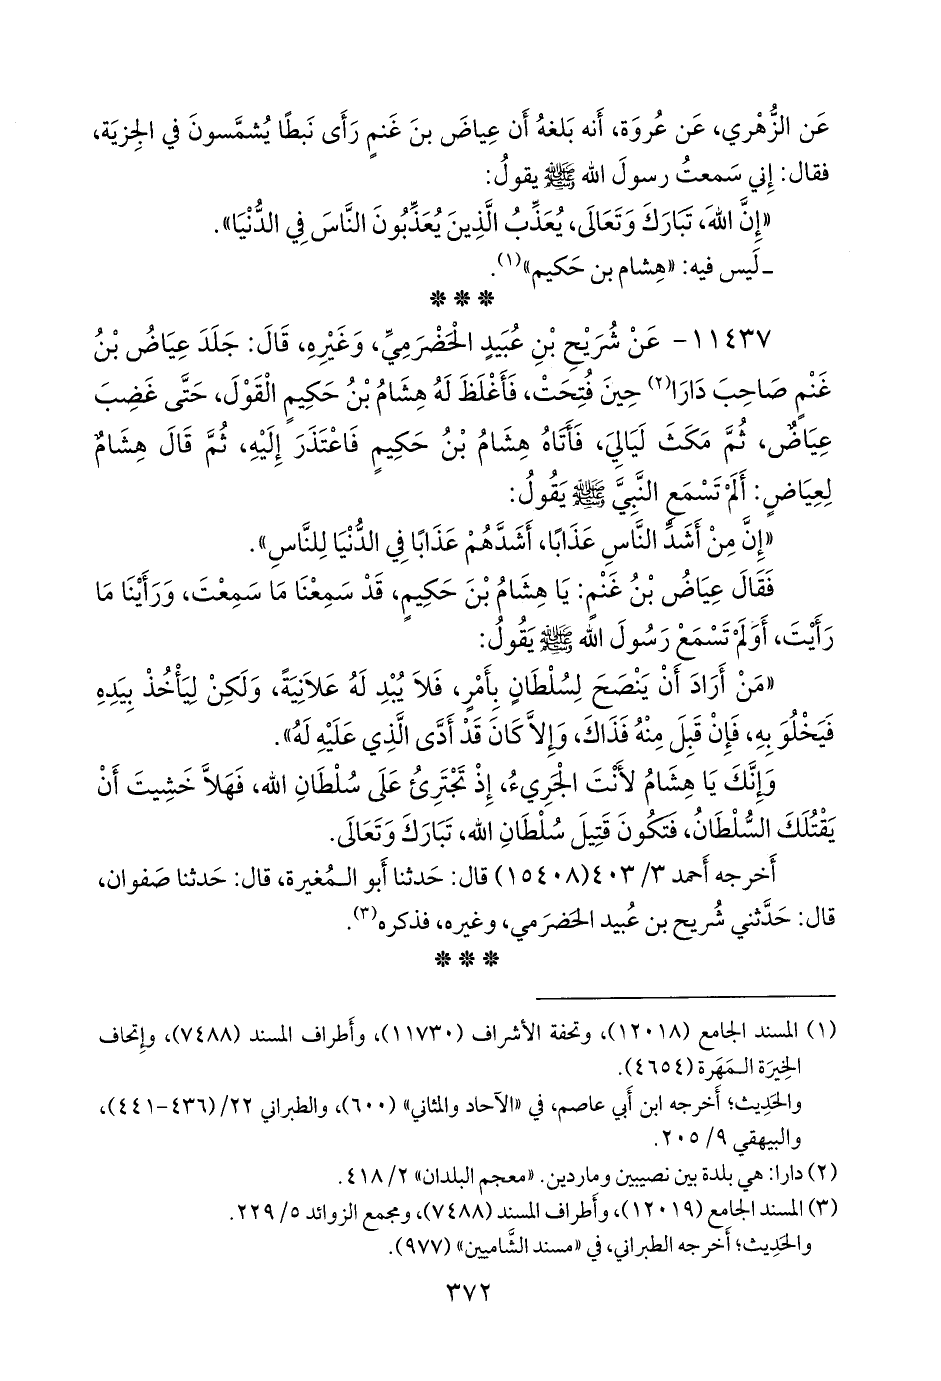 عَن الزُّهْري، عَن عُروَة، أَنه بَلغهُ أَن عِياضَ بنَ غَنمٍ رَأَى نَبطًا يُشمَّسونَ في الجِزيَة،
فقال: إِني سَمعتُ رسولَ الله ﷺ يقولُ:
«إِنَّ اللهَ، تَبَارَكَ وَتَعَالَى، يُعَذِّبُ الَّذِينَ يُعَذِّبُونَ النَّاسَ فِي الدُّنْيَا».
ـ لَيس فيه: «هِشام بن حَكيم»(١).
* * *
١١٤٣٧ - عَنْ شُرَيْحِ بْنِ عُبَيدٍ الْحَضْرَمِيِّ، وَغَيْرِهِ، قَالَ: جَلَدَ عِيَاضُ بْنُ
غَنْمٍ صَاحِبَ دَارَا(٢) حِينَ فُتِحَتْ، فَأَغْلَظَ لَهُ هِشَامُ بْنُ حَكِيمٍ الْقَوْلَ، حَتَّى غَضِبَ
عِيَاضٌ، ثُمَّ مَكَثَ لَيَالِيَ، فَأَتَاهُ هِشَامُ بْنُ حَكِيمٍ فَاعْتَذَرَ إِلَيْهِ، ثُمَّ قَالَ هِشَامٌ
لِعِيَاضٍ: أَلَمْ تَسْمَعِ النَّبِيَّ ﷺ يَقُولُ:
«إِنَّ مِنْ أَشَدِّ النَّاسِ عَذَابًا، أَشَدَّهُمْ عَذَابًا فِي الدُّنْيَا لِلنَّاسِ».
فَقَالَ عِيَاضُ بْنُ غَنْمٍ: يَا هِشَامُ بْنَ حَكِيمٍ، قَدْ سَمِعْنَا مَا سَمِعْتَ، وَرَأَيْنَا مَا
رَأَيْتَ، أَوَلَمْ تَسْمَعْ رَسُولَ الله ﷺ يَقُولُ:
«مَنْ أَرَادَ أَنْ يَنْصَحَ لِسُلْطَانٍ بِأَمْرٍ، فَلَا يُبْدِ لَهُ عَلَانِيَةً، وَلَكِنْ لِيَأْخُذْ بِيَدِهِ
فَيَخْلُوَ بِهِ، فَإِنْ قَبِلَ مِنْهُ فَذَاكَ، وَإِلَّا كَانَ قَدْ أَدَّى الَّذِي عَلَيْهِ لَهُ».
وَإِنَّكَ يَا هِشَامُ لَأَنْتَ الْجَرِيءُ، إِذْ تَجْتَرِئُ عَلَى سُلْطَانِ الله، فَهَلَّا خَشِيتَ أَنْ
يَقْتُلَكَ السُّلْطَانُ، فَتَكُونَ قَتِيلَ سُلْطَانِ الله، تَبَارَكَ وَتَعَالَى.
أَخرجه أَحمد ٣/ ٤٠٣(١٥٤٠٨) قال: حَدثنا أَبو الـمُغيرة، قال: حَدثنا صَفوان،
قال: حَدَّثني شُريح بن عُبيد الحَضرَمي، وغيره، فذكره(٣).
* * *
(١) المسند الجامع (١٢٠١٨)، وتحفة الأشراف (١١٧٣٠)، وأَطراف المسند (٧٤٨٨)، وإِتحاف
الخِيرَة الـمَهَرة (٤٦٥٤).
والحَدِيث؛ أَخرجه ابن أَبي عاصم، في «الآحاد والمثاني» (٦٠٠)، والطبراني ٢٢/(٤٣٦-٤٤١)،
والبيهقي ٩/ ٢٠٥.
(٢) دارا: هي بلدة بين نصيبين وماردين. «معجم البلدان» ٢/ ٤١٨.
(٣) المسند الجامع (١٢٠١٩)، وأَطراف المسند (٧٤٨٨)، ومجمع الزوائد ٥/ ٢٢٩.
والحَدِيث؛ أَخرجه الطبراني، في «مسند الشَّاميين» (٩٧٧).
٣٧٢